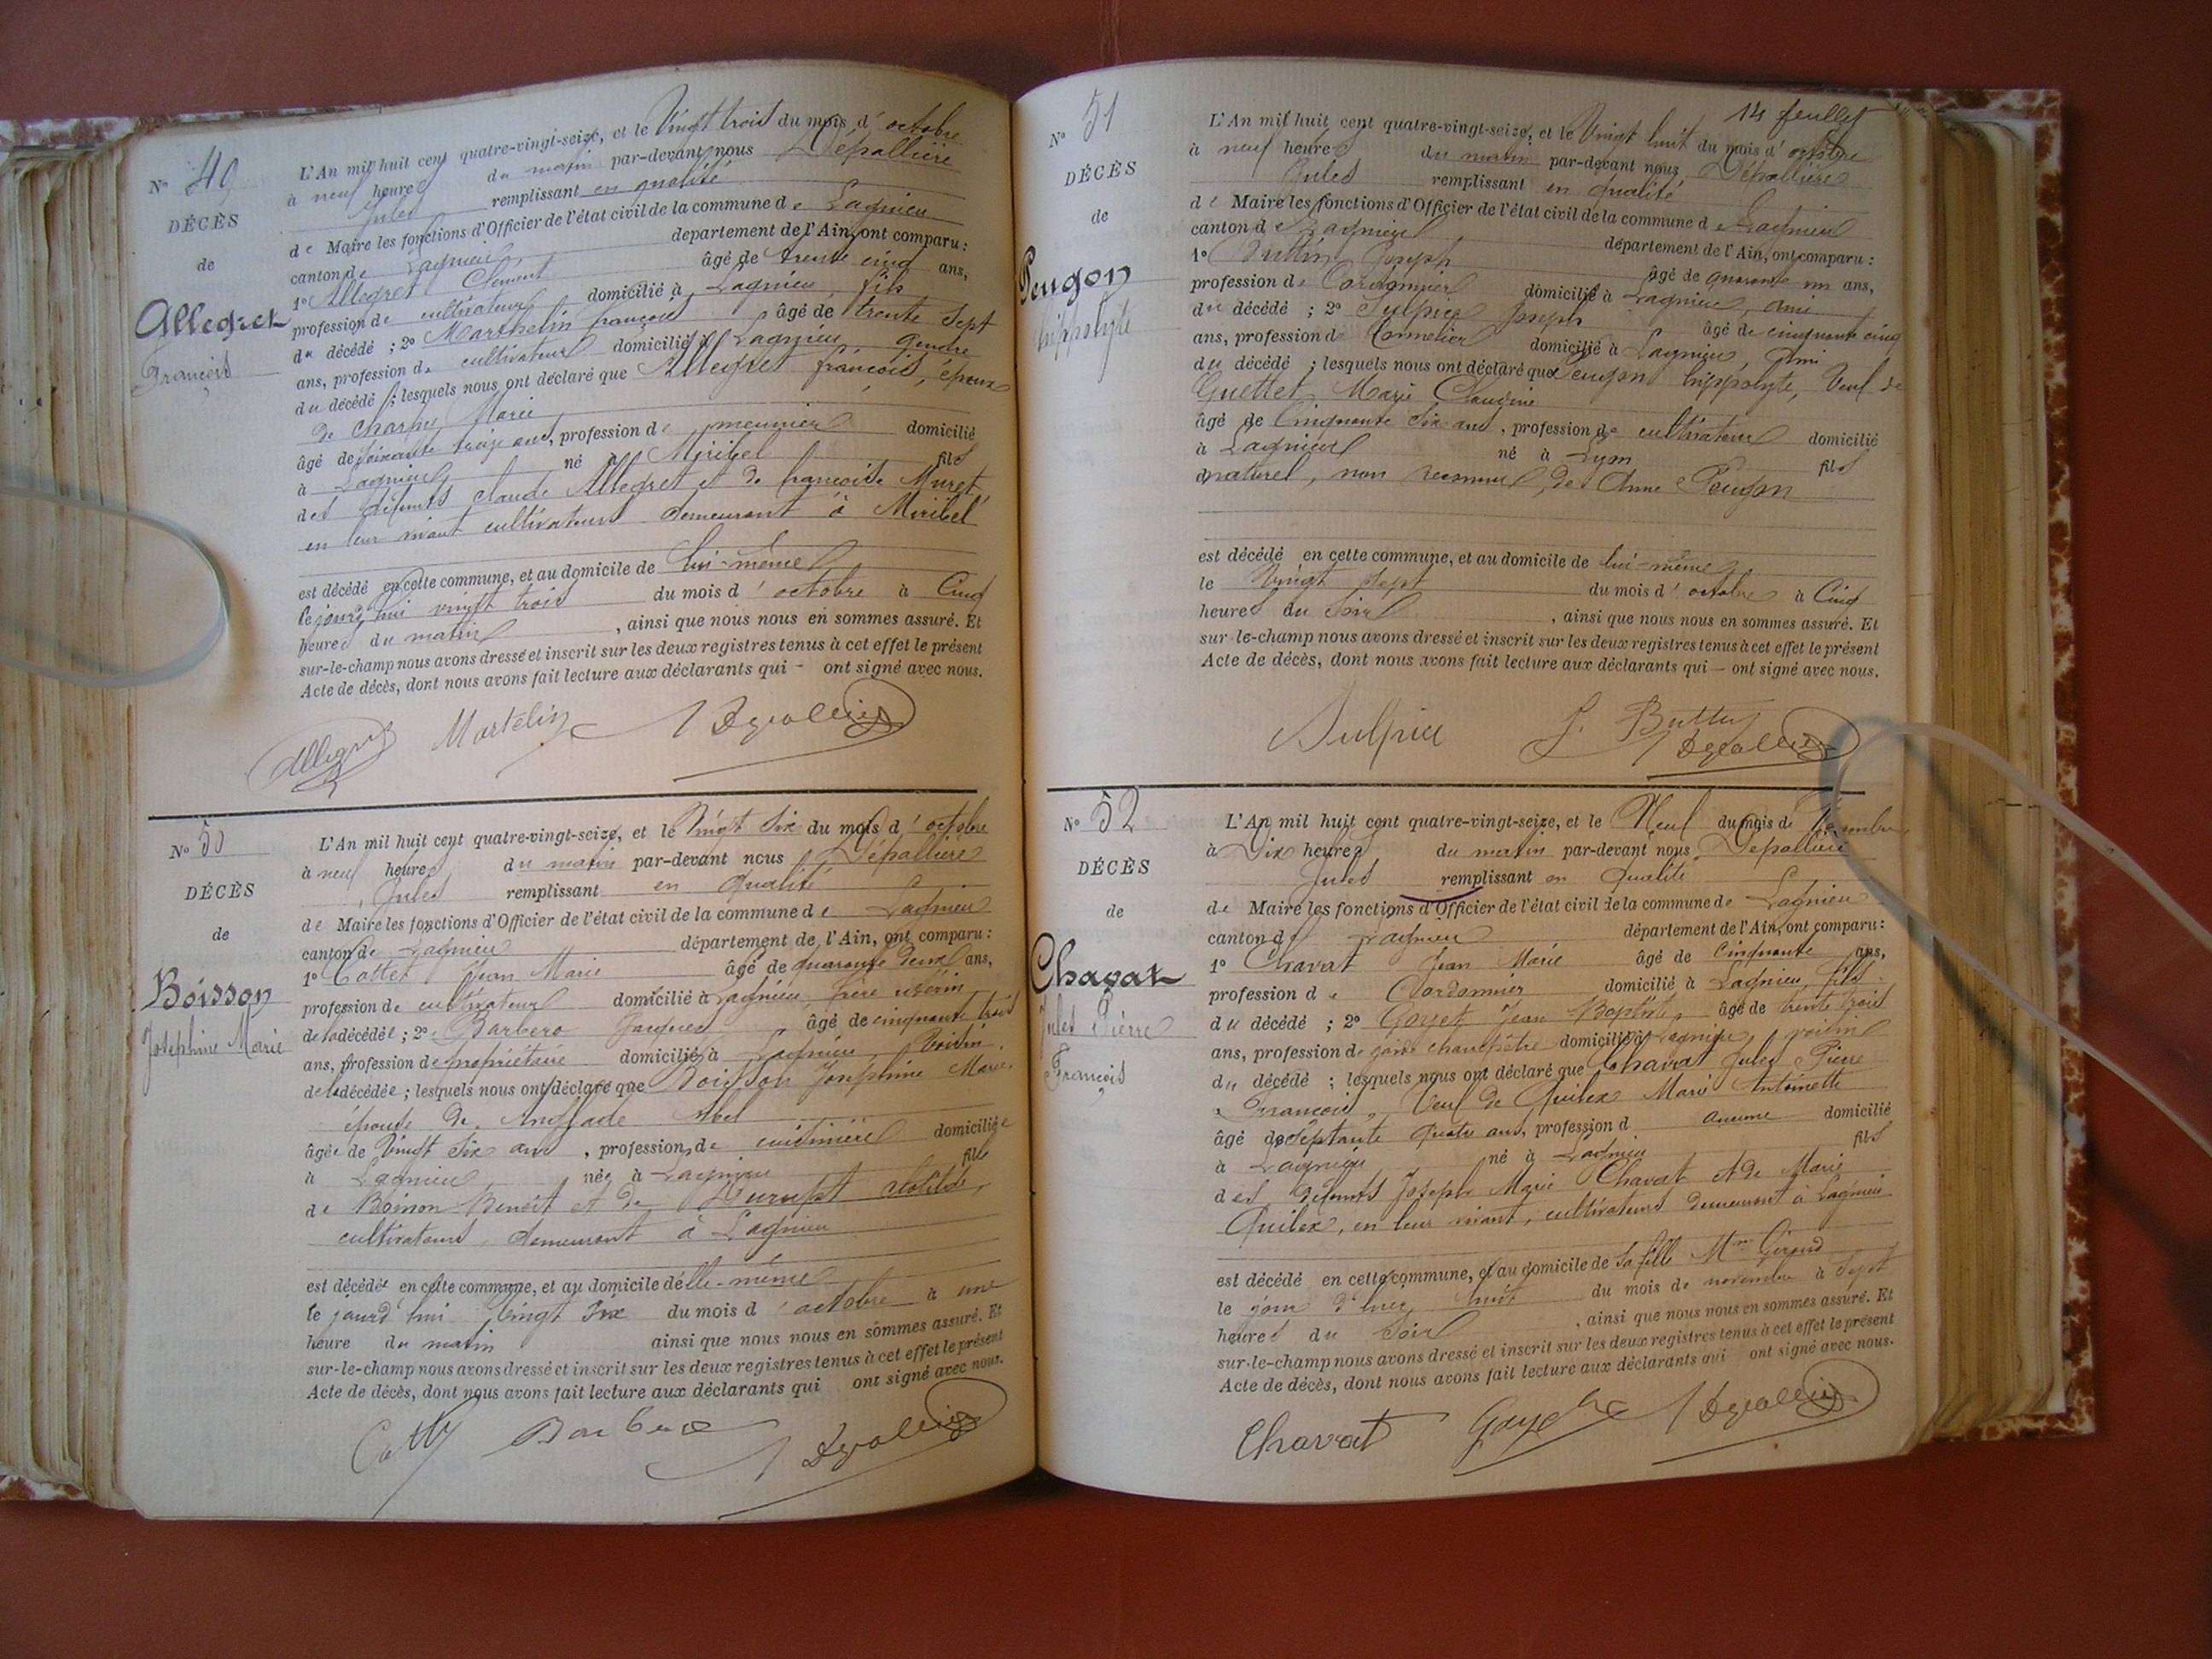 N° 49
DÉCÈS
de
Allegret
François
L'An mil huit cent quatre-vingt-seize, et le Vingt trois du mois d'octobre
à neuf heures du matin par-devant nous Dépallière
Jules remplissant en qualité
de Maire les fonctions d'Officier de l'état civil de la commune de Lagnieu
canton de Lagnieu département de l'Ain, ont comparu :
1° Allegret Clément âgé de trente cinq ans,
profession de cultivateur domicilié à Lagnieu, fils
du décédé ; 2° Marthelin françois âgé de trente sept
ans, profession de cultivateur domicilié à Lagnieu Gendre
du décédé ; lesquels nous ont déclaré que Allegret françois, époux
de Charpy Marie
âgé de soixante treize ans, profession de meunier domicilié
à Lagnieu né à Miribel fils
des défunts claude Allegret et de françoise Muret,
en leur vivant cultivateurs demeurant à Miribel
est décédé en cette commune, et au domicile de lui-même
le jourd'hui vingt trois du mois d'octobre à Cinq
heures du matin, ainsi que nous nous en sommes assuré. Et
sur-le-champ nous avons dressé et inscrit sur les deux registres tenus à cet effet le présent
Acte de décès, dont nous avons fait lecture aux déclarants qui - ont signé avec nous.
Martelin
N° 50
DÉCÈS
de
Boisson
Joséphine Marie
L'An mil huit cent quatre-vingt-seize, et le Vingt Six du mois d'octobre
à neuf heures du matin par-devant nous Dépallière
Jules remplissant en qualité
de Maire les fonctions d'Officier de l'état civil de la commune de Lagnieu
canton de Lagnieu département de l'Ain, ont comparu :
1° Cottet Jean Marie âgé de quarante deux ans,
profession de cultivateur domicilié à Lagnieu, frère utérin
de la décédée ; 2° Barbero Jacques âgé de cinquante trois
ans, profession de propriétaire domicilié à Lagnieu, Voisin
de la décédée ; lesquels nous ont déclaré que Boisson Joséphine Marie,
épouse de Anglade Abel
âgée de Vingt Six ans, profession de cuisinière domiciliée
à Lagnieu née à Lagnieu fille
de Boisson Benoît et de clotilde,
cultivateurs demeurant à Lagnieu
est décédée en cette commune, et au domicile d'elle-même
le jourd'hui Vingt Six du mois d'octobre à une
heure du matin ainsi que nous nous en sommes assuré. Et
sur-le-champ nous avons dressé et inscrit sur les deux registres tenus à cet effet le présent
Acte de décès, dont nous avons fait lecture aux déclarants qui ont signé avec nous.
14 feuillet
N° 51
DÉCÈS
de
Peugon
hippolyte
L'An mil huit cent quatre-vingt-seize, et le Vingt huit du mois d'octobre
à neuf heures du matin par-devant nous Dépallière
Jules remplissant en qualité
de Maire les fonctions d'Officier de l'état civil de la commune de Lagnieu
canton de Lagnieu département de l'Ain, ont comparu :
1° Buttin Joseph âgé de quarante un ans,
profession de Cordonnier domicilié à Lagnieu, ami
du décédé ; 2° Sulpice Joseph âgé de cinquante cinq
ans, profession de Tonnelier domicilié à Lagnieu, Ami
du décédé ; lesquels nous ont déclaré que Peugon hippolyte, Veuf de
Guettet Marie Claudine
âgé de Cinquante Six ans, profession de cultivateur domicilié
à Lagnieu né à Lyon fils
naturel, non reconnu, de Anne Peugon
est décédé en cette commune, et au domicile de lui-même
le Vingt Sept du mois d'octobre à Cinq
heures du Soir, ainsi que nous nous en sommes assuré. Et
sur-le-champ nous avons dressé et inscrit sur les deux registres tenus à cet effet le présent
Acte de décès, dont nous avons fait lecture aux déclarants qui - ont signé avec nous.
Sulpice
N° 52
DÉCÈS
de
Chavat
Jules Pierre
François
L'An mil huit cent quatre-vingt-seize, et le Neuf du mois de Novembre
à Dix heures du matin par-devant nous Dépallière
Jules remplissant en Qualité
de Maire les fonctions d'Officier de l'état civil de la commune de Lagnieu
canton de Lagnieu département de l'Ain, ont comparu :
1° Chavat Jean Marie âgé de Cinquante ans,
profession de Cordonnier domicilié à Lagnieu, fils
du décédé ; 2° Goyet Jean Baptiste, âgé de trente trois
ans, profession de garde champêtre domicilié à Lagnieu, voisin
du décédé ; lesquels nous ont déclaré que Chavat Jules Pierre
François, Veuf de Quilex Marie Antoinette
âgé de Septante Quatre ans, profession d aucune domicilié
à Lagnieu né à Lagnieu fils
des Défunts Joseph Marie Chavat et de Marie
Quilex, en leur vivant, cultivateurs demeurant à Lagnieu
est décédé en cette commune, et au domicile de Sa fille Mme Giroud
le jour d'hier huit du mois de novembre à Sept
heures du Soir, ainsi que nous nous en sommes assuré. Et
sur-le-champ nous avons dressé et inscrit sur les deux registres tenus à cet effet le présent
Acte de décès, dont nous avons fait lecture aux déclarants qui ont signé avec nous.
Chavat